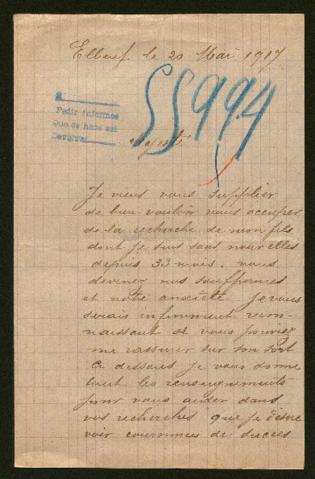 Elbeuf le 20 Mai 1917
Pedir informes
Que se hace así
55994
Majesté
Je viens vous supplier
de bien vouloir vous occuper
de la recherche de mon fils
dont je suis sans nouvelles
depuis 33 mois. vous
devinez nos souffrances
et notre anxiété je vous
serais infiniment recon-
naissant si vous pouviez
me rassurer sur son sort
Ci dessous je vous donne
tout les renseignements
pour vous aider dans
vos recherches que je désire
voir couronnées de succès